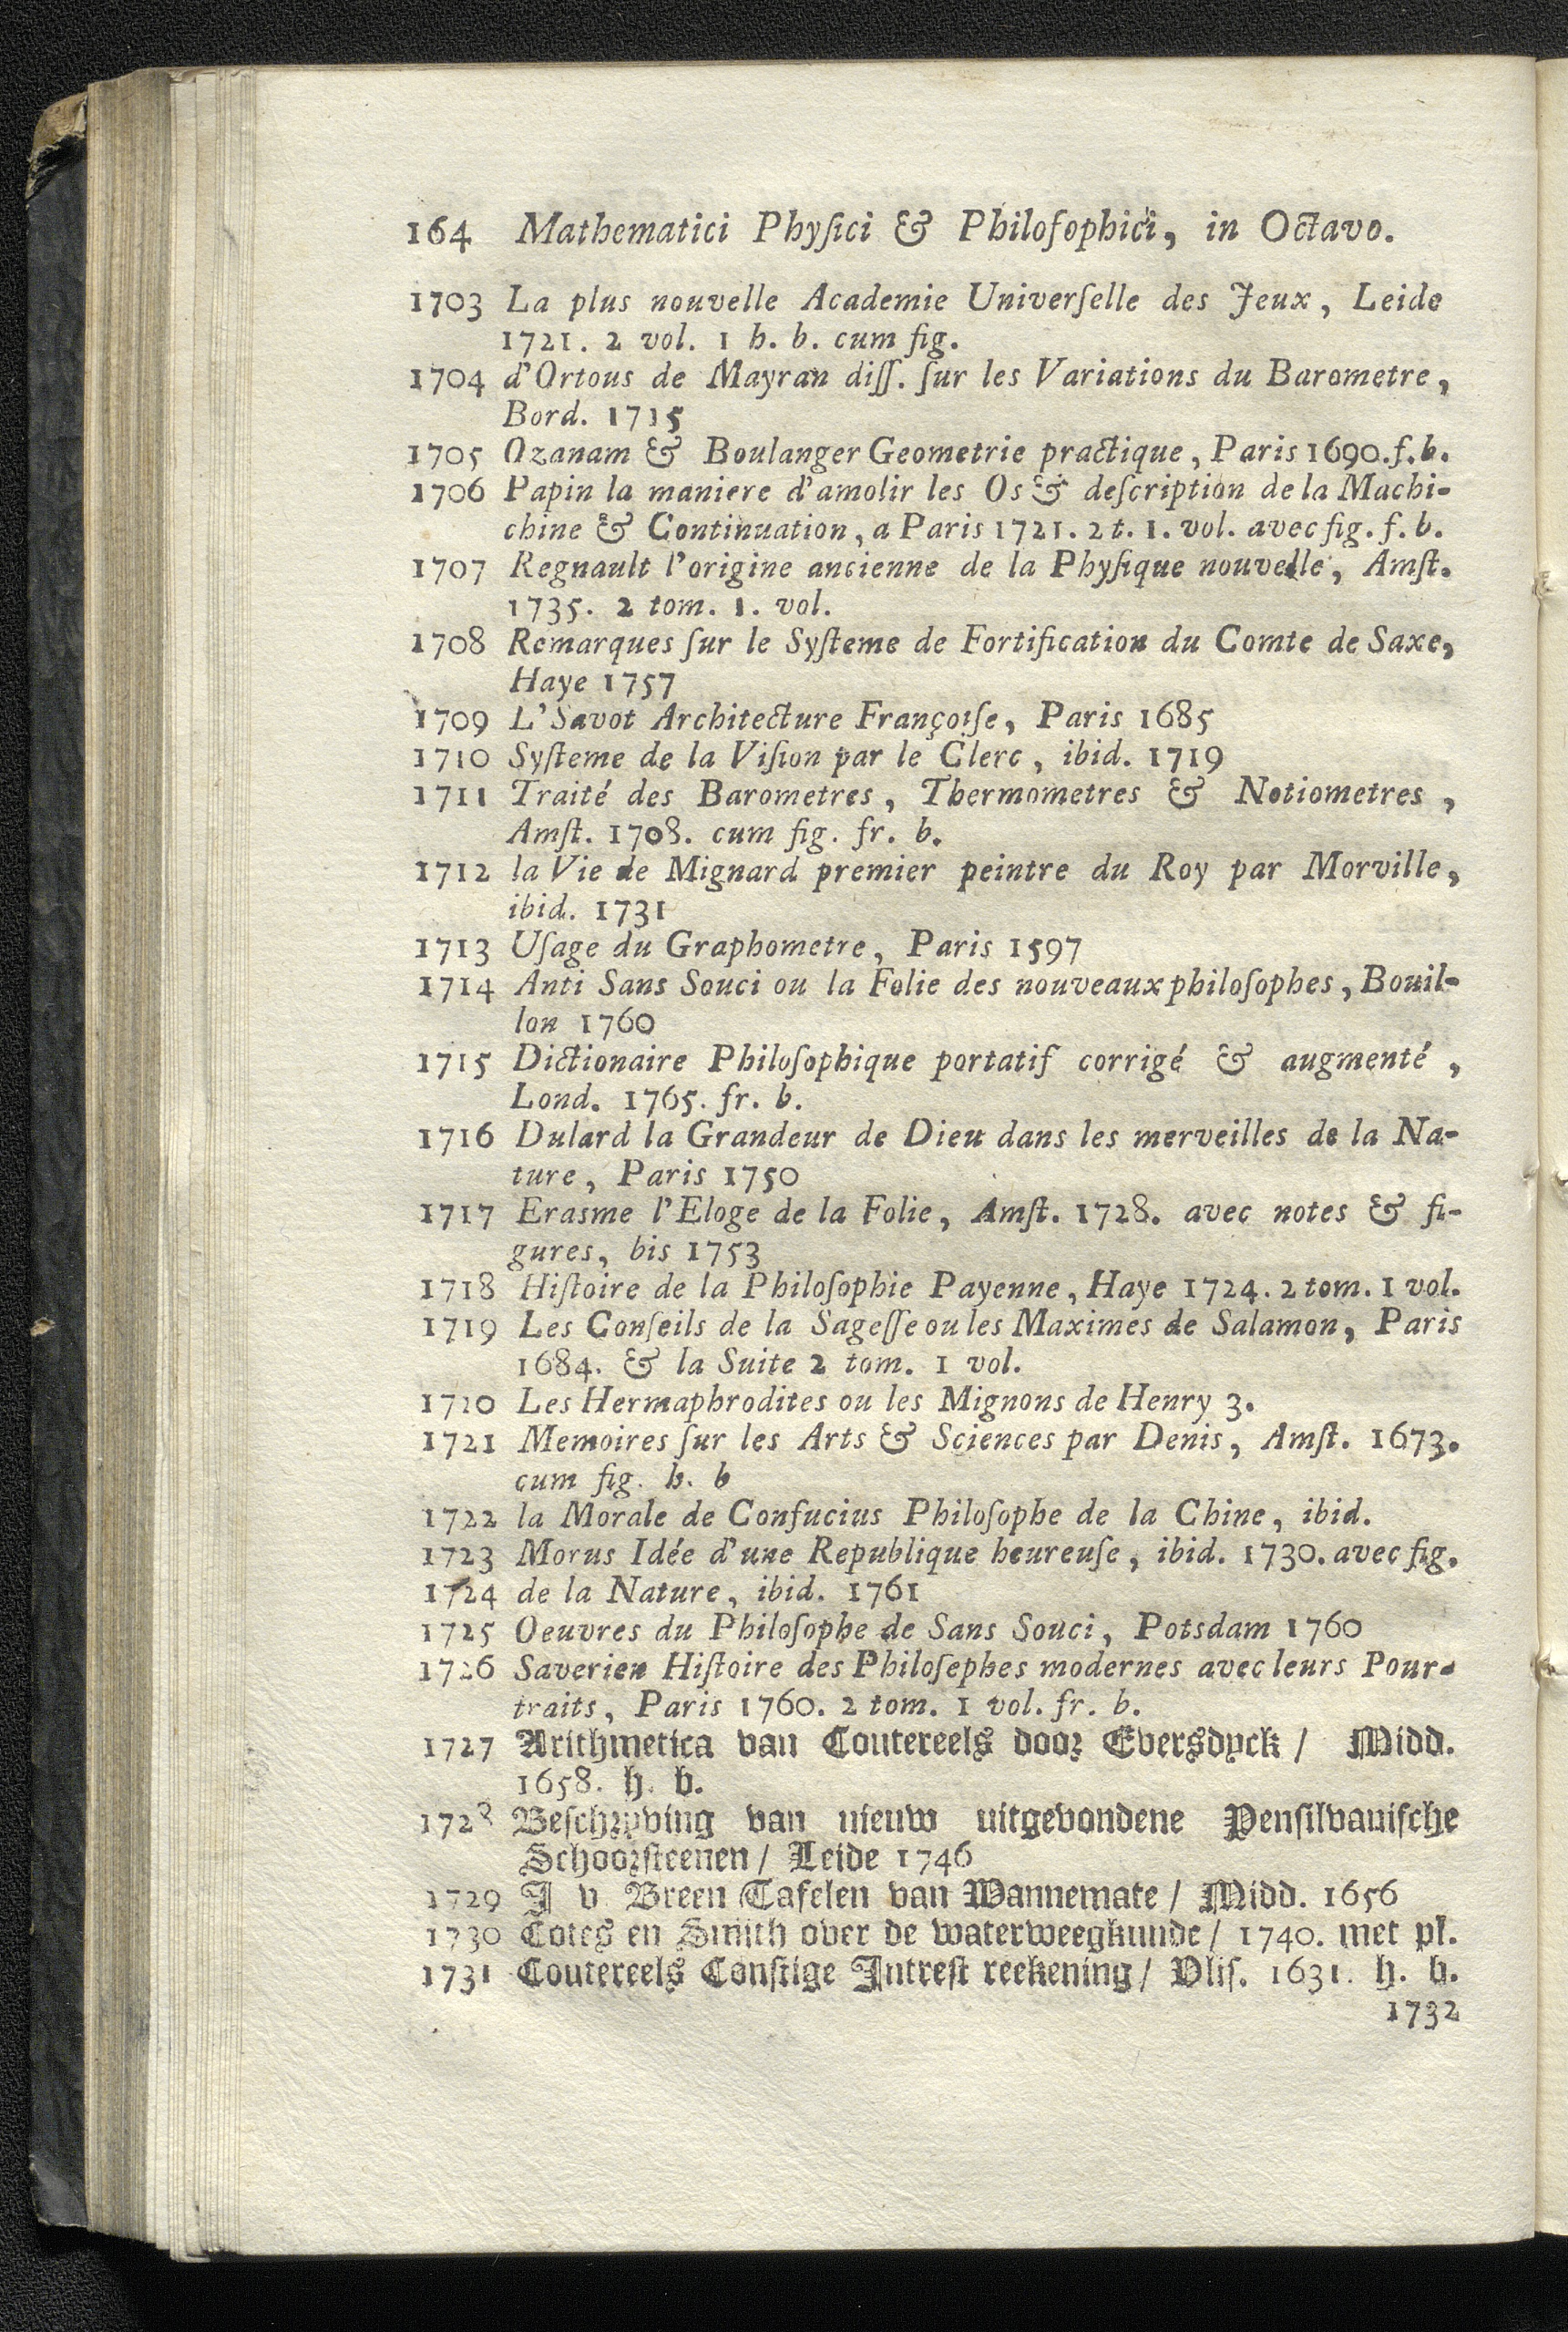 164 Mathematici Phyſici & Philoſophici, in Octavo.
1703 La plus nouvelle Academie Univerſelle des Jeux, Leide
1721. 2 vol. 1 h. b. cum fig.
1704 d'Ortous de Mayran diſſ. ſur les Variations du Barometre,
Bord. 1715
1705 Ozanam & Boulanger Geometrie practique, Paris 1690. f. b.
1706 Papin la maniere d'amolir les Os & deſcription de la Machi-
chine & Continuation, a Paris 1721. 2 t. 1. vol. avec fig. f. b.
1707 Regnault l'origine ancienne de la Phyſique nouvelle, Amſt.
1735. 2 tom. 1. vol.
1708 Remarques ſur le Syſteme de Fortification du Comte de Saxe,
Haye 1757
1709 L'Savot Architecture Françoiſe, Paris 1685
1710 Syſteme de la Viſion par le Clerc, ibid. 1719
1711 Traité des Barometres, Thermometres & Notiometres,
Amſt. 1708. cum fig. fr. b.
1712 la Vie de Mignard premier peintre du Roy par Morville,
ibid. 1731
1713 Uſage du Graphometre, Paris 1597
1714 Anti Sans Souci ou la Folie des nouveaux philoſophes, Bouil-
lon 1760
1715 Dictionaire Philoſophique portatif corrigé & augmenté,
Lond. 1765. fr. b.
1716 Dulard la Grandeur de Dieu dans les merveilles de la Na-
ture, Paris 1750
1717 Erasme l'Eloge de la Folie, Amſt. 1728. avec notes & fi-
gures, bis 1753
1718 Hiſtoire de la Philoſophie Payenne, Haye 1724. 2 tom. 1 vol.
1719 Les Conſeils de la Sageſſe ou les Maximes de Salamon, Paris
1684. & la Suite 2 tom. 1 vol.
1710 Les Hermaphrodites ou les Mignons de Henry 3.
1721 Memoires ſur les Arts & Sciences par Denis, Amſt. 1673.
cum fig. h. b
1722 la Morale de Confucius Philoſophe de la Chine, ibid.
1723 Morus Idée d'une Republique heureuſe, ibid. 1730. avec fig.
1724 de la Nature, ibid. 1761
1725 Oeuvres du Philoſophe de Sans Souci, Potsdam 1760
1726 Saverien Hiſtoire des Philoſephes modernes avec leurs Pour-
traits, Paris 1760. 2 tom. 1 vol. fr. b.
1727 Arithmetica van Coutereels door Eversdyck / Midd.
1658. h. b.
1728 Beſchryving van nieuw uitgevondene Penſilvaniſche
Schoorſteenen / Leide 1746
1729 J v. Breen Tafelen van Wannemate / Midd. 1656
1730 Cotes en Smith over de waterweegkunde / 1740. met pl.
1731 Coutereels Conſtige Intreſt reekening / Vliſ. 1631. h. b.
1732